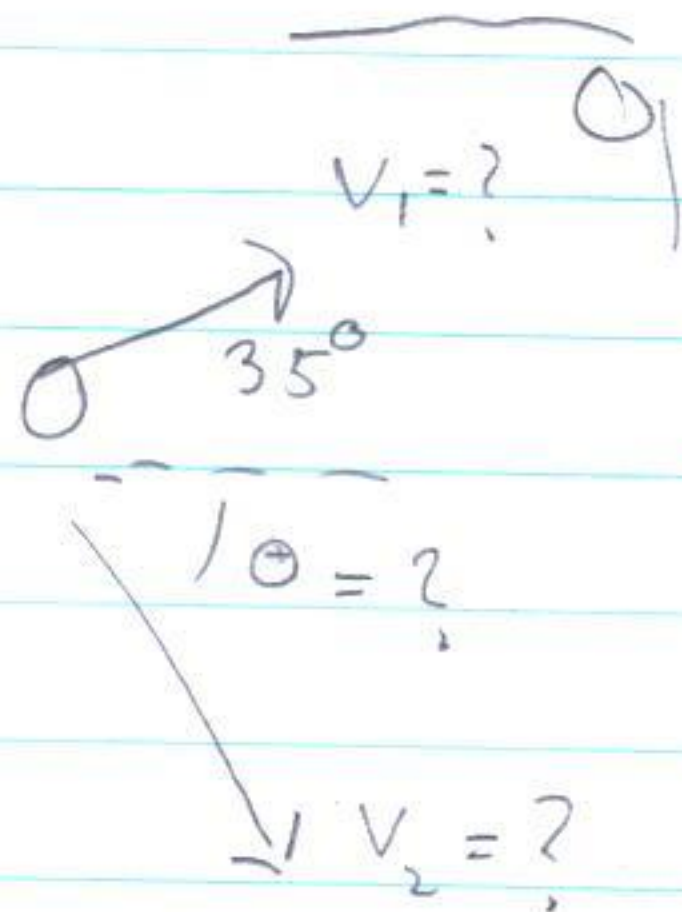 V₁ = ?
35°
θ = ?
V₂ = ?